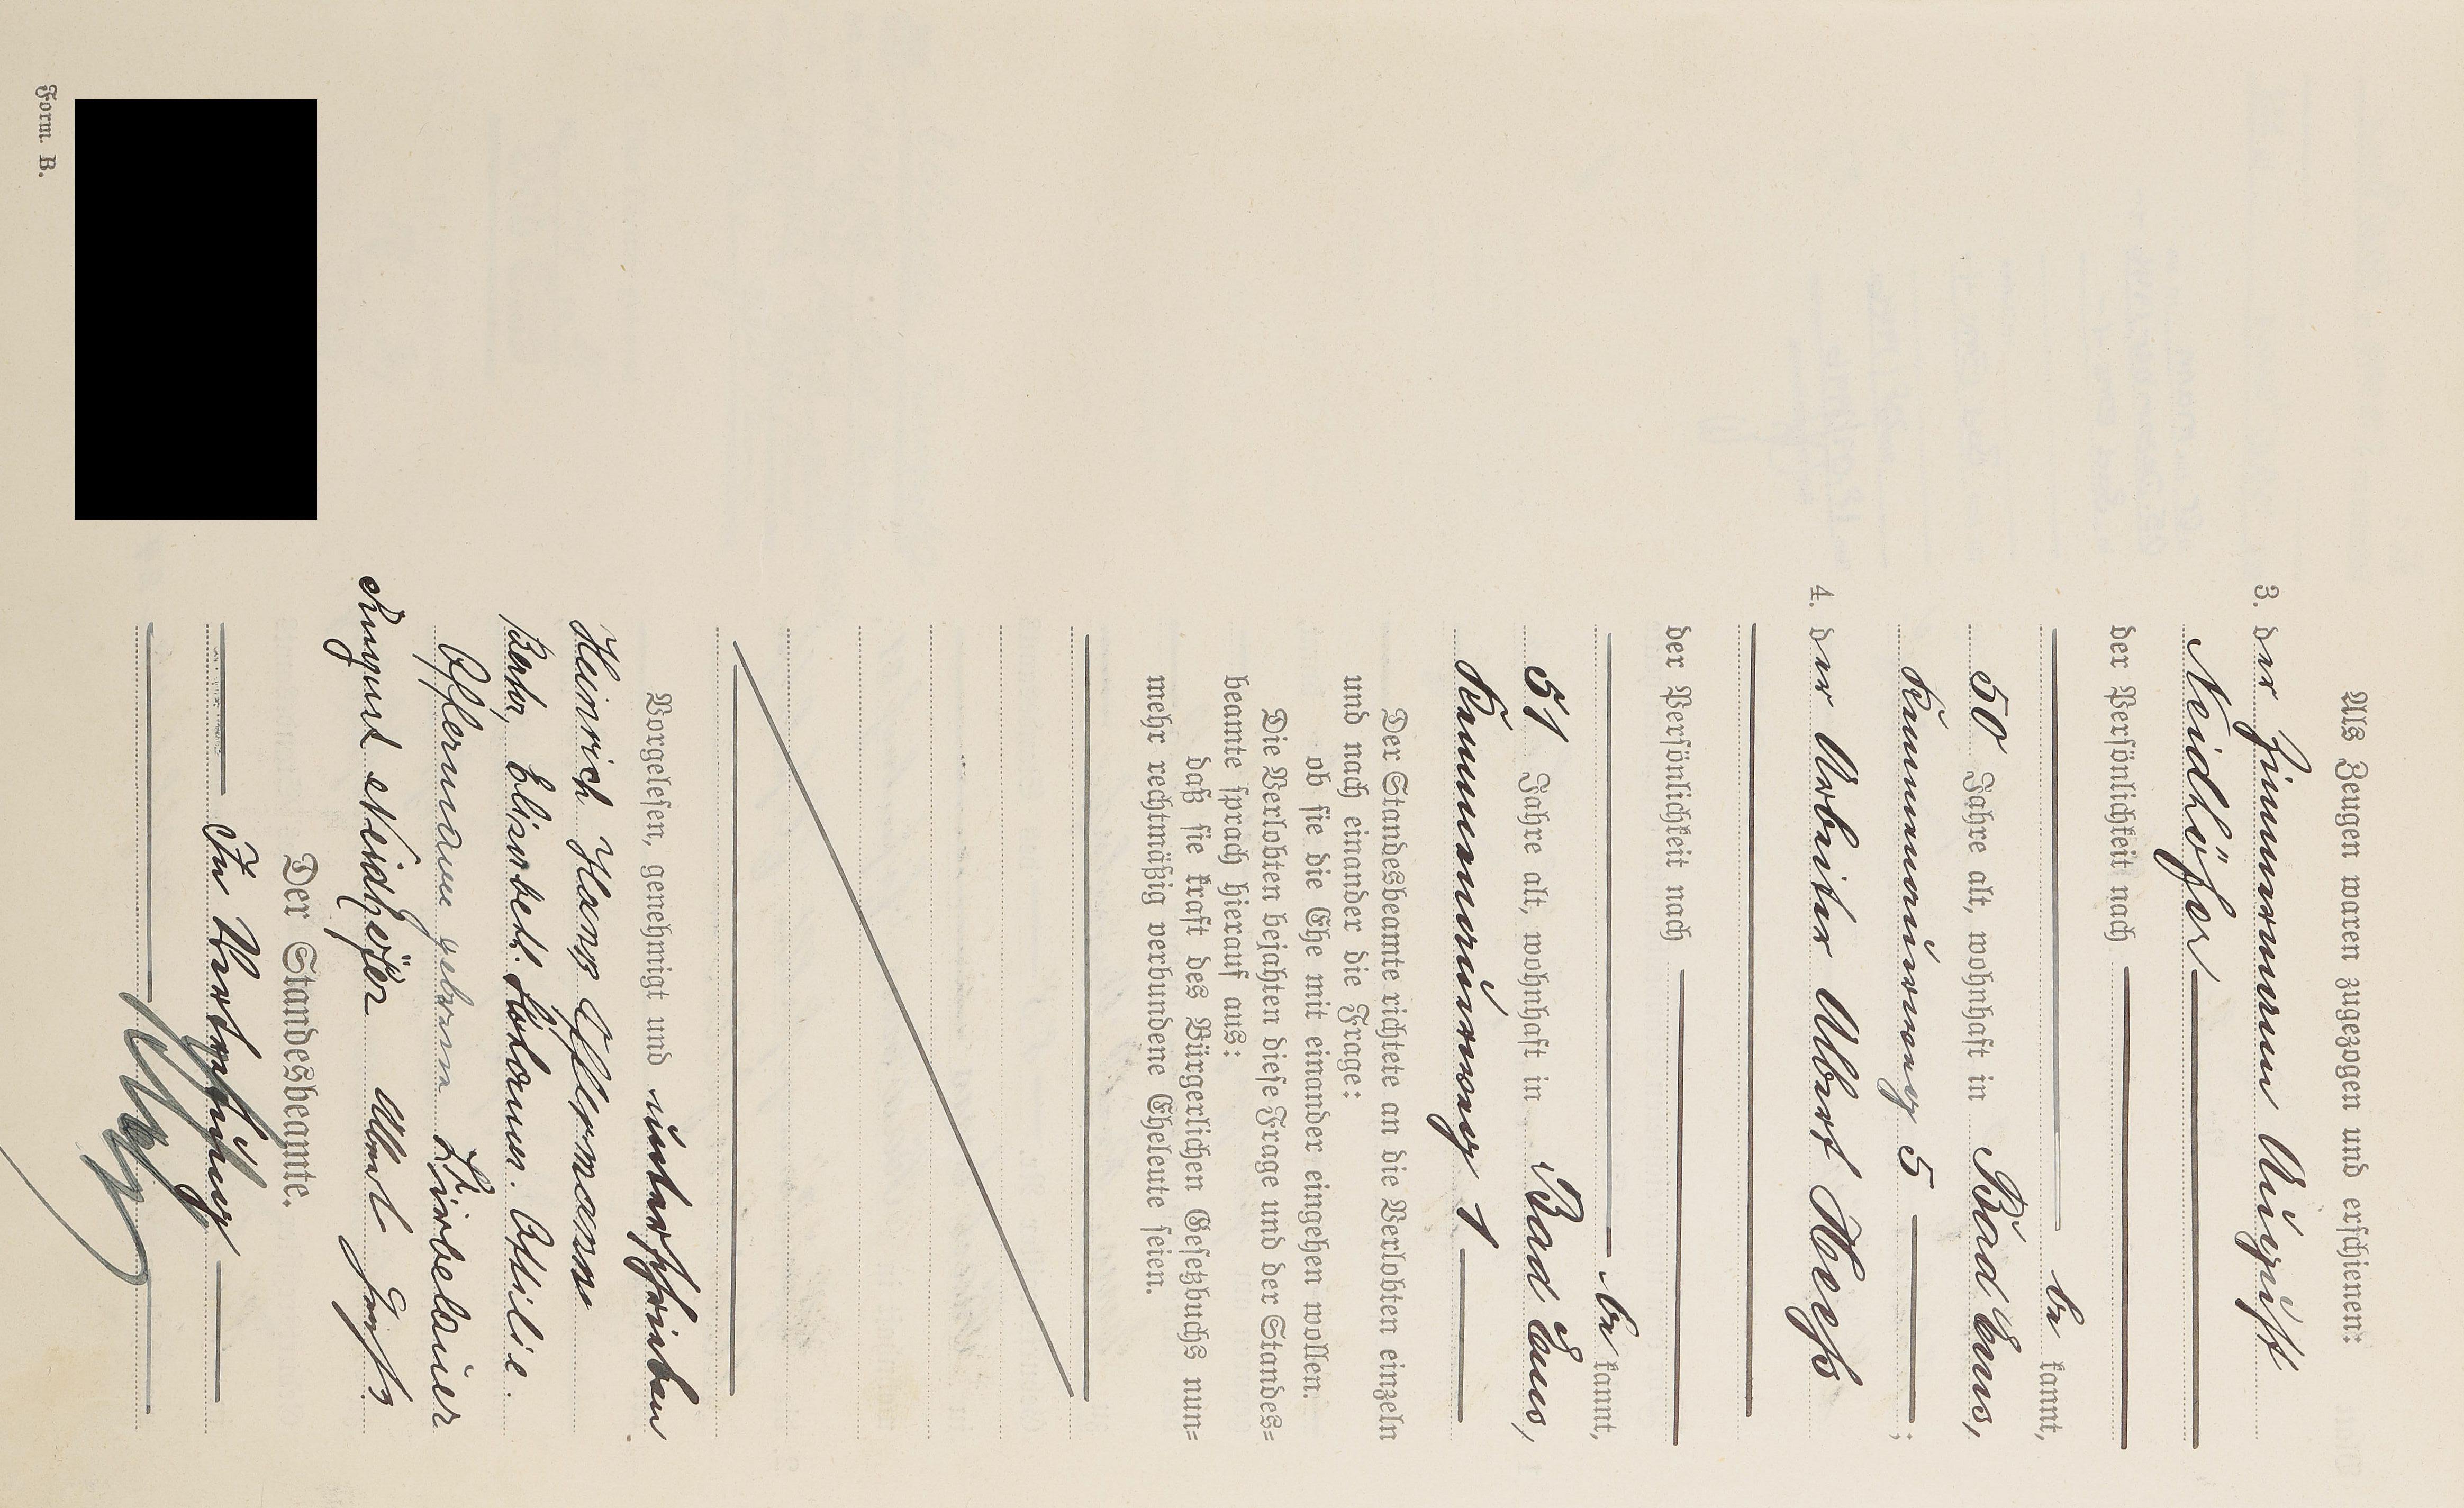 Als Zeugen waren zugezogen und erschienen:
3. der Zimmermann August
Neidhöfer
der Persönlichkeit nach
be kannt,
50 Jahre alt, wohnhaft in Bad Ems,
5 ;
4. der Arbeiter Albert Heess
der Persönlichkeit nach
be kannt,
51 Jahre alt, wohnhaft in Bad Ems,
1
Der Standesbeamte richtete an die Verlobten einzeln
und nach einander die Frage:
ob sie die Ehe mit einander eingehen wollen.
Die Verlobten bejahten diese Frage und der Standes=
beamte sprach hierauf aus:
daß sie kraft des Bürgerlichen Gesetzbuchs nun=
mehr rechtmäßig verbundene Eheleute seien.
Vorgelesen, genehmigt und unterschrieben
Heinrich Hans Offermann
Elisabeth Ottilie.
Offermann geborene
August Neidhöfer Albert
Der Standesbeamte.
In Vertretung
Form. B.